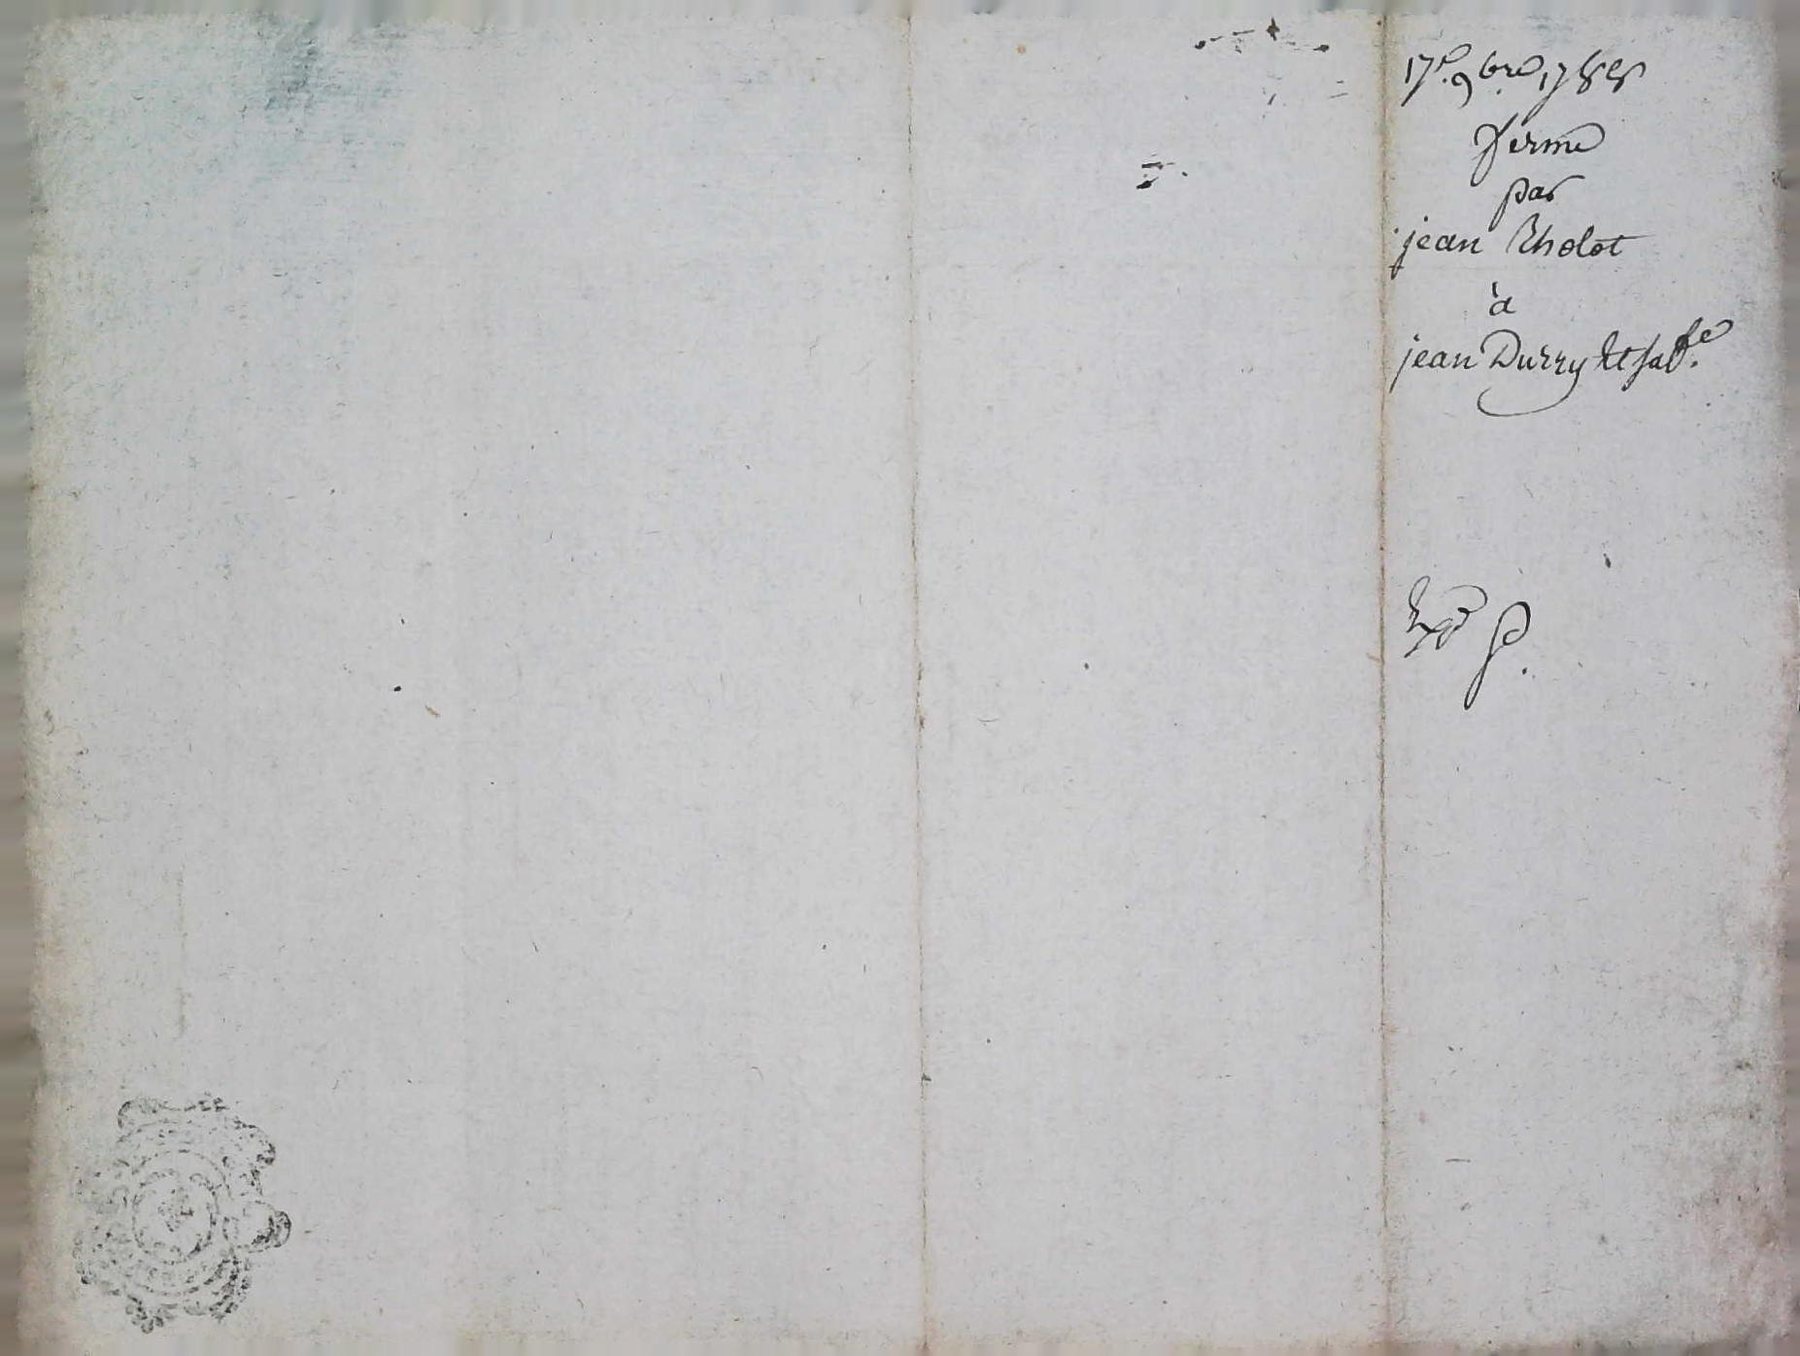 17e. 9bre 1788
ferme
par
jean Tholot
à
jean Durry et sa fe.